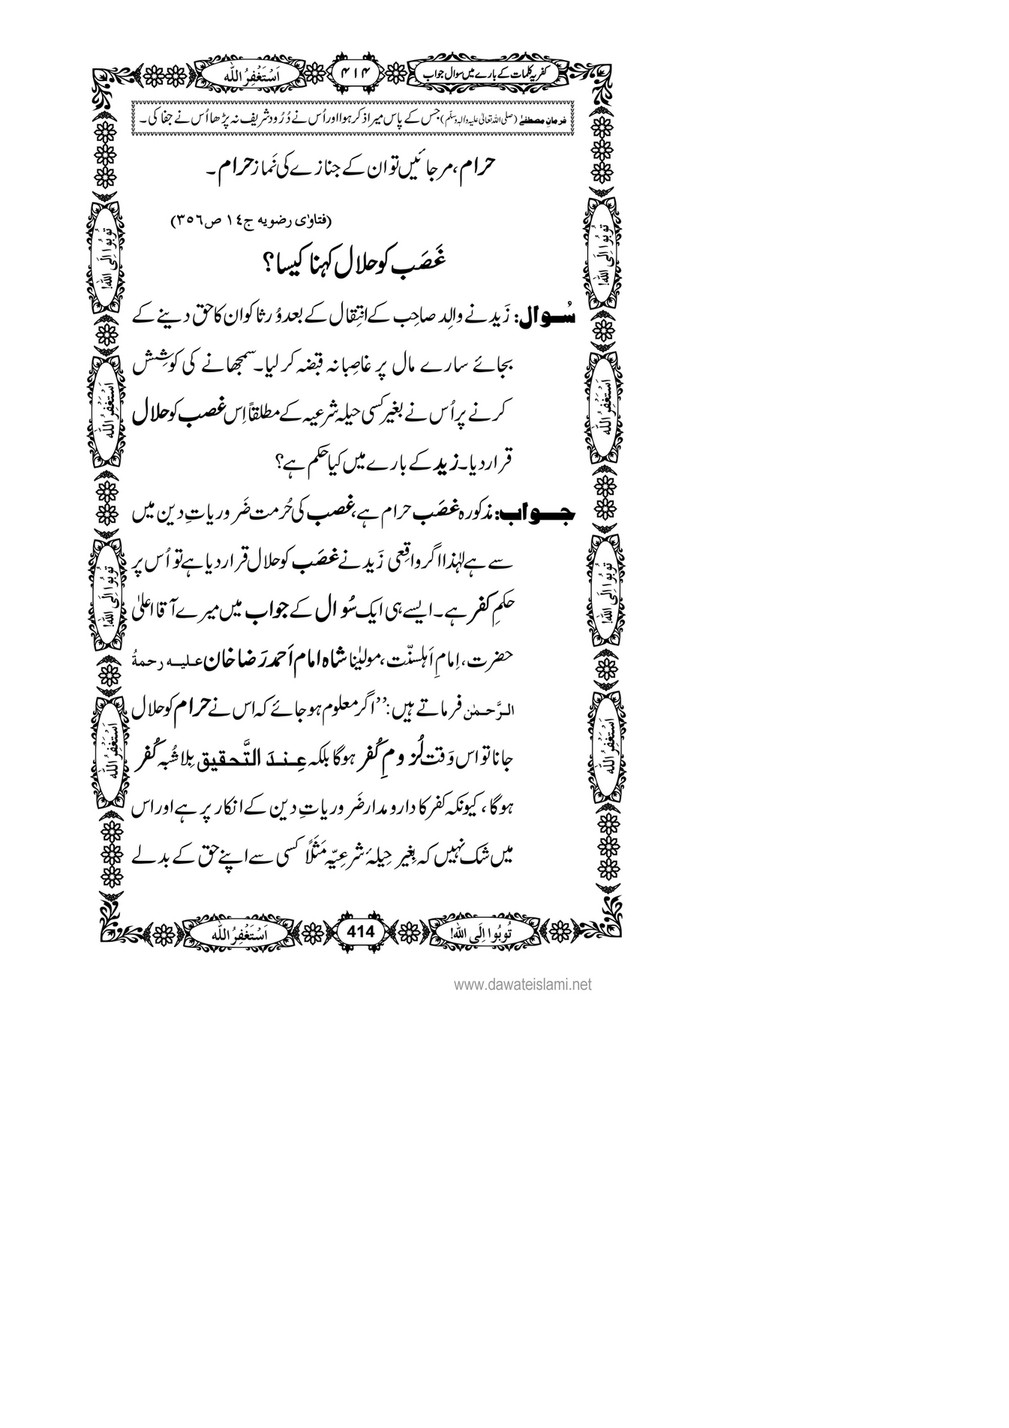 کفریہ کلمات کے بارے میں سوال جواب
۴۱۴
اَسْتَغْفِرُاللّٰہ
فرمانِ مصطفےٰ (صلی اللہ تعالیٰ علیہ والہ وسلّم) جس کے پاس میرا ذکر ہوا اور اُس نے دُرُود شریف نہ پڑھا اُس نے جفا کی۔
حرام، مرجائیں تو ان کے جنازے کی نَماز حرام۔
(فتاوٰی رضویہ ج١٤ ص٣٥٦)
غَصَب کو حلال کہنا کیسا؟
سُوال: زَید نے والِد صاحِب کے انتِقال کے بعد وُرثا کو ان کا حق دینے کے
بجائے سارے مال پر غاصِبانہ قبضہ کرلیا۔ سمجھانے کی کوشِش
کرنے پر اُس نے بغیر کسی حیلہ شرعیہ کے مطلقاً اِس غصب کو حلال
قرار دیا۔ زید کے بارے میں کیا حکم ہے؟
جواب: مذکورہ غصَب حرام ہے، غصب کی حُرمت ضَروریاتِ دین میں
سے ہے لہٰذا اگر واقِعی زَید نے غصَب کو حلال قرار دیا ہے تو اُس پر
حکمِ کفر ہے۔ ایسے ہی ایک سُوال کے جواب میں میرے آقا اعلیٰ
حضرت، اِمامِ اَہلسنّت، مولیٰنا شاہ امام اَحمد رَضا خان علیہ رحمۃُ
الرَّحمٰن فرماتے ہیں: ’’اگر معلوم ہوجائے کہ اس نے حرام کو حلال
جانا تو اس وَقت لُزومِ کُفر ہوگا بلکہ عِندَ التَّحقیق بِلا شُبہ کُفر
ہوگا، کیونکہ کفر کا دارومدار ضَروریاتِ دین کے انکار پر ہے اور اس
میں شک نہیں کہ بِغیر حِیلۂ شرعِیّہ مَثَلًا کسی سے اپنے حق کے بدلے
تُوبُوا اِلَی اللّٰہ!
414
اَسْتَغْفِرُاللّٰہ
تُوبُوا اِلَی اللّٰہ!
اَسْتَغْفِرُاللّٰہ
تُوبُوا اِلَی اللّٰہ!
اَسْتَغْفِرُاللّٰہ
تُوبُوا اِلَی اللّٰہ!
اَسْتَغْفِرُاللّٰہ
تُوبُوا اِلَی اللّٰہ!
اَسْتَغْفِرُاللّٰہ
www.dawateislami.net